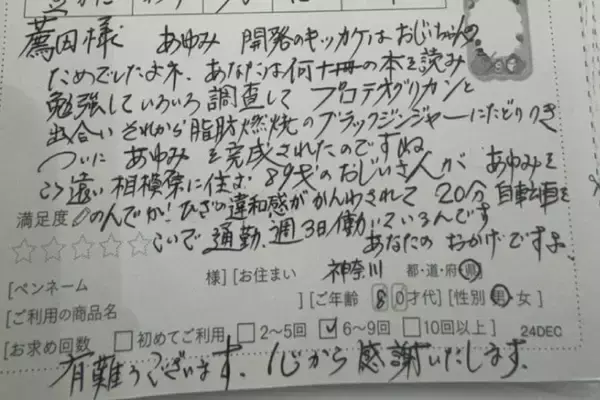 薦田様 あゆみ 開発のキッカケはおじいちゃんの
ためでしたよネ、あなたは何十冊の本を読み
勉強していろいろ調査して プロテオグリカンと
出合い それから脂肪燃焼のブラックジンジャーにたどりつき
ついに あゆみ を完成されたのですね
遠い相模原に住む 89才のおじいさんが あゆみを
のんでか!ひざの違和感がかんわされて 20分 自転車を
こいで 通勤、週3日働いているんです
あなたの おかげですよ
満足度
☆☆☆☆☆
[ペンネーム 様] [お住まい 神奈川 都・道・府・県]
[ご利用の商品名 ] [ご年齢 80才代] [性別 男・女]
[お求め回数 □初めてご利用 □2～5回 ☑6～9回 □10回以上] 24DEC
有難うございます、心から 感謝いたします、